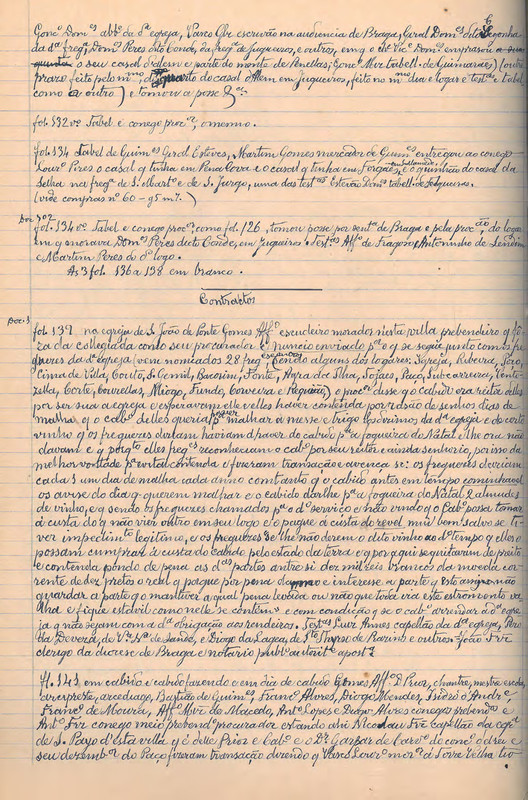 Gonçº Domˢ abbᵉ da dª egreja, Vasco Glz escrivão na audiencia de Braga, Geral Domˢ dito Cegonha
da dª fregª, Domˢ Peres dito Conde, da fregª de Jugueiros, e outros, em q o dº Vicᵉ Domˢ emprasou
o seu casal d'alem e parte do monte de Penellas; Gonçº Mrz tabellᵃᵐ de Guimarães) (outro
praso feito pelo mᵐº, do quarto do casal d'Alem em Jugueiros, feito no mᵐº dia e logar e testᵃˢ e tabel
como o outro) e tomou a posse
fol. 132 vº Tabel e conego procᵒʳ, o mesmo.
fol. 134 Tabel de Guimᵉˢ Geral Esteves, Martim Gomes mercador de Guimᵉˢ entregou ao conego
Lourº Pires o casal q tinha em Pena Cova e o casal q tinha em e o quinhão do casal da
Selha na fregª de S. Martº e de S. Jurgo, uma das testᵃˢ Estevão Domˢ tabellᵃᵐ de Felgueiras.
(vide compras nº 60 - 95 m. 7.)
fol. 134 vº Tabel e conego procᵒʳ, como fol. 126, tomou posse por sentᶜᵃ de Braga e pela procᵃᵐ, do logar
em q morava Domˢ Peres dito Conde, em Jugueiros. Testᵃˢ Affº de Fragoso, Antoninho de
e Martim Peres do dº logo.
As 3 fol. 136 a 138 em branco.
Contractos
fol. 139 na egreja de S. João de Ponte Gomes Affº escudeiro morador nesta villa prebendeiro q fo-
ra da collegiada como seu procurador e nuncio enviado pª o q se segue, junto com os fre-
guezes da dª egreja (vem nomeados 28 freg, sendo alguns dos logares: Igreja, Ribeira, Paço,
Cima de Villa, Couto, S. Gemil, Bacorim, Fonte, Agra da Ilha, Sofaes, Paço, Subcarreira, Cante-
zella, Corte, Gouvellas, Miogo, Fundo, Corveira e ) e o procᵒʳ disse q o cabido era reitor d'elles
por ser sua a egreja e esperavam elle e elles haver contenda por rasão de senhos dias de
malha q o cabº d'elles queria pª malhar a messe e trigo dos dizimos da dª egreja e de certo
vinho q os freguezes diziam haviam d'haver do cabido pª a fogueira do Natal e lhe ora não
davam e q posto elles fregᵉˢ reconheciam o cabº por seu reitor e ainda senhorio, por isso da
melhor vontade pª evitar contenda fizeram transação e avença se: os freguezes dariam
cada 1 um dia de malha cada anno comtanto q o cabido antes em tempo cominha
os avise do dia q querem malhar e o cabido dar-lhe pª a fogueira do Natal 2 almudes
de vinho, e q sendo os freguezes chamados pª o dº serviço e não vindo q o cabº possa tomar
á custa do q não vier outro em seu logo e o pague á custa do revel mui bem salvo se ti-
ver impedimᵗº legitimo, e os freguezes se lhe não derem o dito vinho ao dº tempo q elles o
possam comprar á custa do cabido pelo estado da terra e q por aqui se quitaram de preito
e contenda pondo de pena as dᵃˢ partes antre si dez mil reis brancos da moeda cor-
rente de dez pretos o real q pague por pena e interesse a parte q esto assim não
guardar a parte q o manter a qual pena levada ou não que toda via este estromento va-
lha e fique estavel como nelle se contém e com condição q se o cabº arrendar a dª egre-
ja q não sejam com a dª obrigação aos rendeiros. Testᵃˢ Luiz Annes capellão da dª egreja, Pero
da Deveza, de Sande, e Diogo da Lagea, de Sᵗº Thyrso de Prazins e outros = João Frz
clerigo da diocese de Braga e notario publº autorit. apost.
ff. 143 em cabido e cabido fazendo e em dia de cabido Gomes Affº D. Prior, chantre, mestre escola,
arciprestre, arcediago, Bastião de Guimˢ, Francº Alvres, Diogo Mendes, Andrº
Francº de Moura, Affº Mrz de Macedo, Antº Lopes e Diogo Alvres conegos prebendᵒˢ e
Antº Frz conego meio prebendº procurador estando ahi Nicolau Frz capellão da egrª
de S. Payo d'esta villa q é d'elle Prior e Cabº e o Dʳ Gaspar de Carvº do concº d'elrei e
seu desembᵒʳ do Paço fizeram transação dizendo q morᵒʳ á Torre Velha ti-